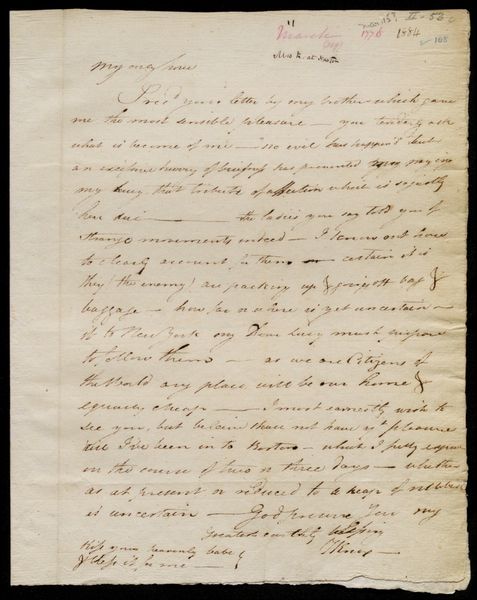 March
1776
1884
Mrs K. at Boston
168
My only love
I rec'd your letter by my brother which gave
me the most sensible pleasure — you tenderly ask
what is become of me — no evil has happen'd but
an excessive hurry of business has prevented my
my Lucy that tribute of affection which is so justly
her due — the ladies you say told you of
strange movements indeed — I know not how
to clearly account for them — certain it is
they (the enemy) are packing up & going off bag &
baggage — how far or where is yet uncertain —
if to New York my Dear Lucy must prepare
to follow them — as we are Citizens of
the World any place will be our home &
equally cheap — I most earnestly wish to
see you, but believe shall not have yt pleasure
till I've been in to Boston — which I fully expect
in the course of two or three days — whether
as at present or reduced to a heap of rubbish
is uncertain — God preserve you my
greatest earthly blessing
HKnox —
Kiss your heavenly babe
& bless it for me —